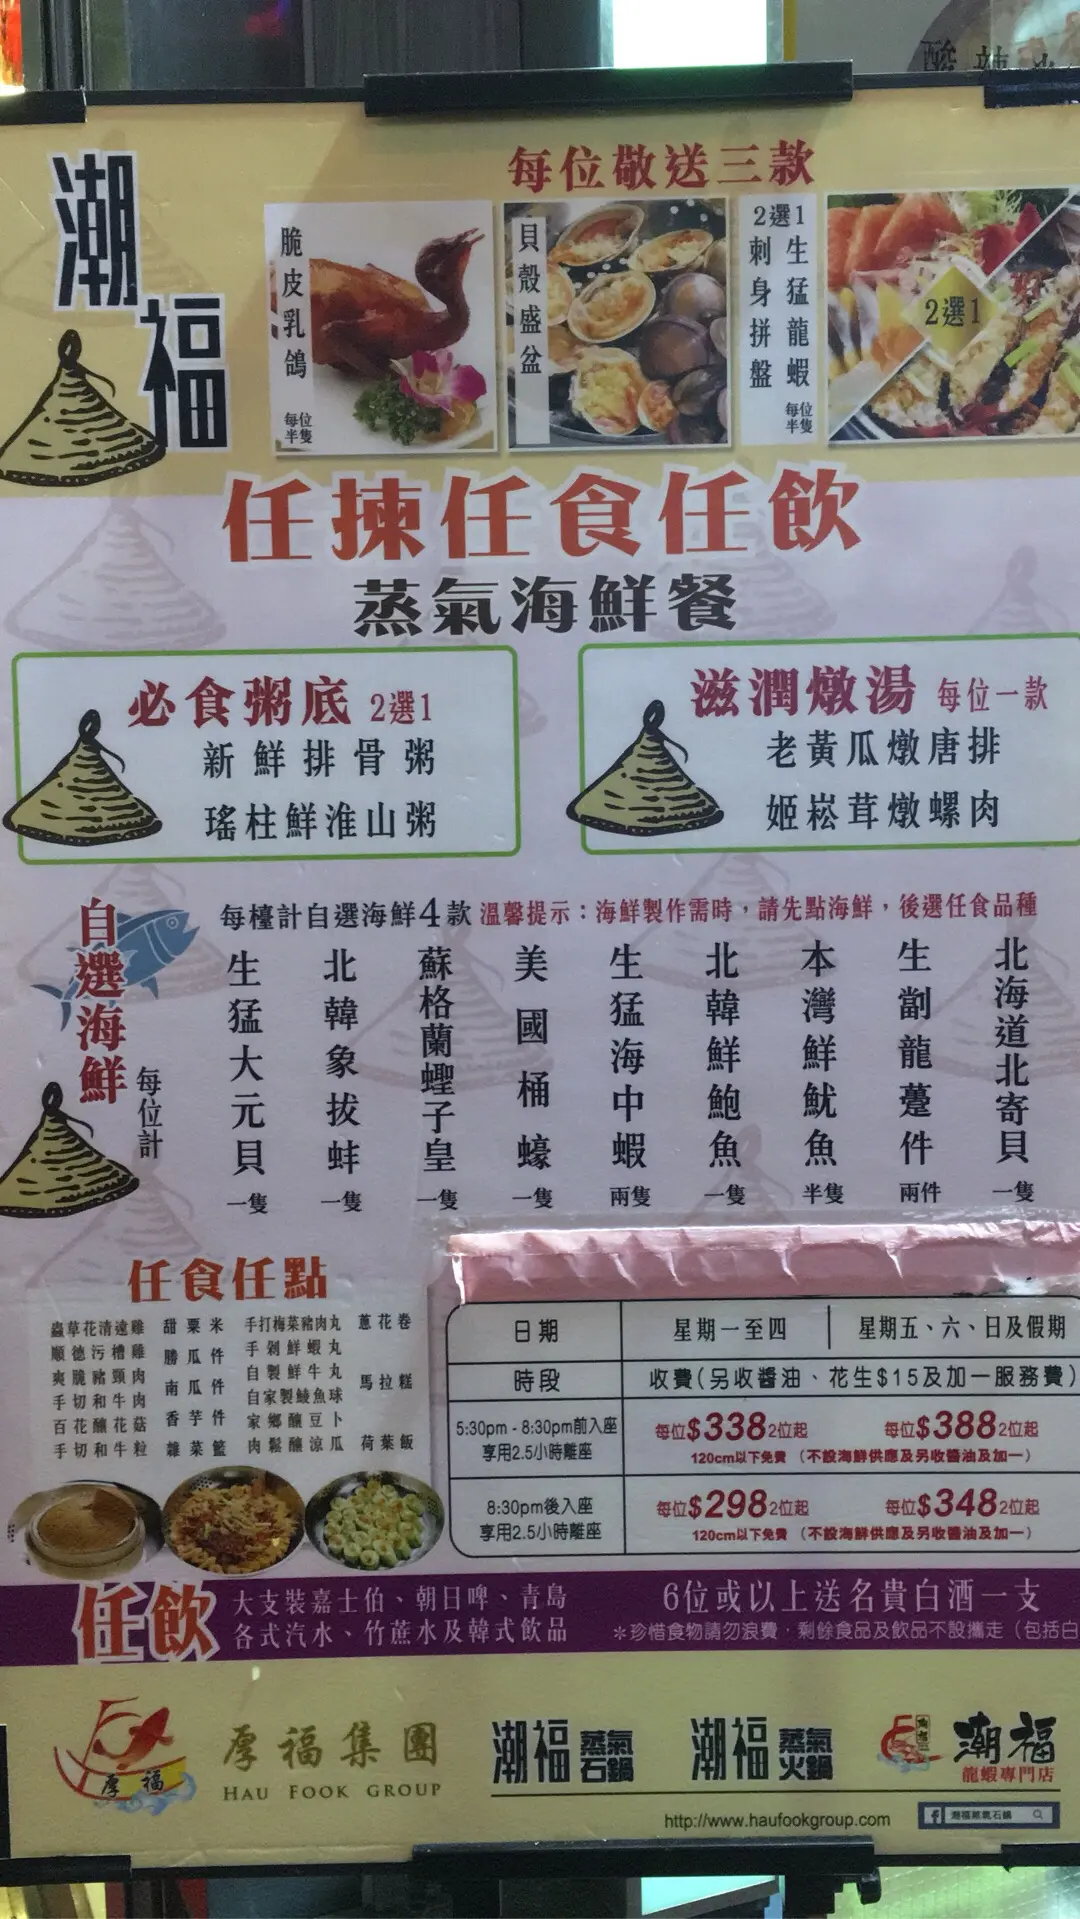 酸辣
潮福
每位敬送三款
脆皮乳鴿
每位半隻
貝殼盛盆
2選1
生猛龍蝦
每位半隻
刺身拼盤
2選1
任揀任食任飲
蒸氣海鮮餐
必食粥底 2選1
新鮮排骨粥
瑤柱鮮淮山粥
滋潤燉湯 每位一款
老黃瓜燉唐排
姬崧茸燉螺肉
自選海鮮
每位計
每檯計自選海鮮4款 溫馨提示：海鮮製作需時，請先點海鮮，後選任食品種
生猛大元貝 一隻
北韓象拔蚌 一隻
蘇格蘭蟶子皇 一隻
美國桶蠔 一隻
生猛海中蝦 兩隻
北韓鮮鮑魚 一隻
本灣鮮魷魚 半隻
生劏龍躉件 兩件
北海道北寄貝 一隻
任食任點
蟲草花清遠雞 甜粟米 手打梅菜豬肉丸 蔥花卷
順德污糟雞 勝瓜件 手剁鮮蝦丸
爽脆豬頸肉 南瓜件 自製鮮牛丸 馬拉糕
手切和牛肉 香芋件 自家製鯪魚球
百花釀花菇 雜菜籃 家鄉釀豆卜 荷葉飯
手切和牛粒 肉鬆釀涼瓜
日期 星期一至四 星期五、六、日及假期
時段 收費(另收醬油、花生$15及加一服務費)
5:30pm - 8:30pm前入座 每位$338 2位起 每位$388 2位起
享用2.5小時離座 120cm以下免費 (不設海鮮供應及另收醬油及加一)
8:30pm後入座 每位$298 2位起 每位$348 2位起
享用2.5小時離座 120cm以下免費 (不設海鮮供應及另收醬油及加一)
任飲
大支裝嘉士伯、朝日啤、青島
各式汽水、竹蔗水及韓式飲品
6位或以上送名貴白酒一支
＊珍惜食物請勿浪費．剩餘食品及飲品不設攜走（包括白
厚福
厚福集團
HAU FOOK GROUP
潮福 蒸氣石鍋
潮福 蒸氣火鍋
潮福
龍蝦專門店
http://www.haufookgroup.com
潮福蒸氣石鍋